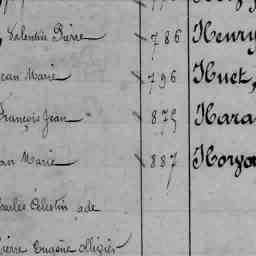 Valentin Pierre 786 Henry
Jean Marie 796 Huet,
François Jean 875 Hara
an Marie 887 Horga
harles Célestin ade
ierre Eugène Olivier